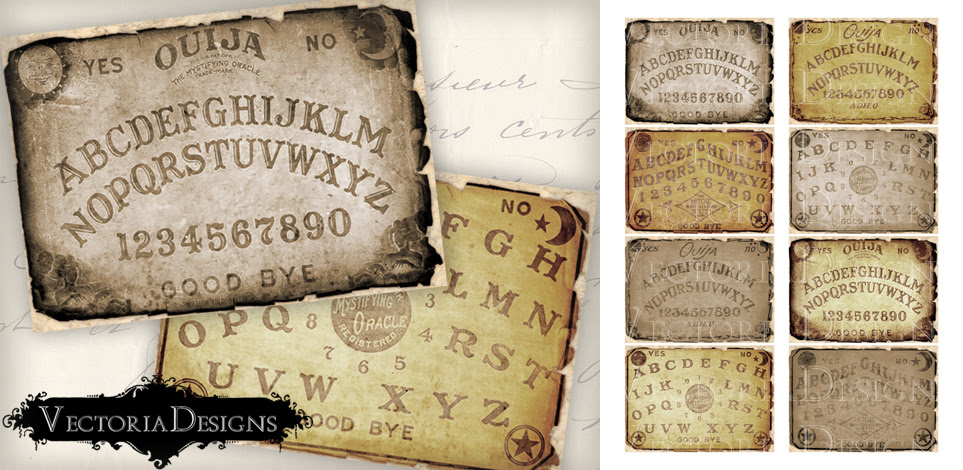 YES OUIJA NO
THE MYSTIFYING ORACLE
TRADE-MARK
ABCDEFGHIJKLM
NOPQRSTUVWXYZ
1234567890
GOOD BYE
NO
F G H
L M N
O P Q 8 MYSTIFYING 3 R S T
ORACLE 4
REGISTERED
7 6 5
U V W X Y Z
OOD BYE
VECTORIADESIGNS
YES OUIJA NO
ABCDEFGHIJKLM
NOPQRSTUVWXYZ
1234567890
GOOD BYE
Yes Ouija no
ABCDEFGHIJKLM
NOPQRSTUVWXYZ
1234567890
ADIEU
YES NO
ABCDEFGHIJKLM
NOPQRSTUVWXYZ
1234567890
GOOD BYE
YES NO
A B C D E F G H
I J K L M N
O P Q R S T
U V W X Y Z
GOOD BYE
yes Ouija no
ABCDEFGHIJKLM
NOPQRSTUVWXYZ
1234567890
ADIEU
YES OUIJA NO
ABCDEFGHIJKLM
NOPQRSTUVWXYZ
1234567890
GOOD BYE
YES NO
A B C D E F G H
I J K L M N
O P Q R S T
U V W X Y Z
GOOD BYE
YES NO
ABCDEFGHIJKLM
NOPQRSTUVWXYZ
1234567890